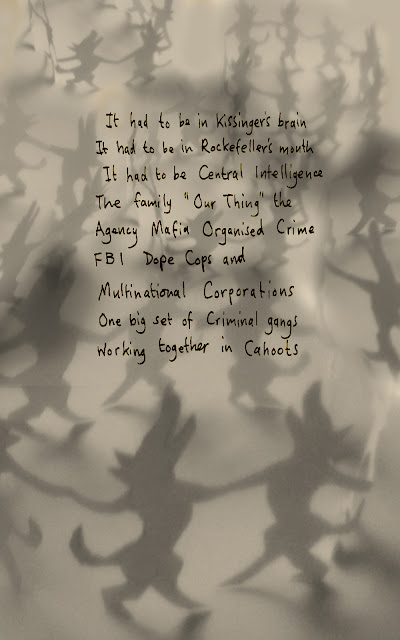 It had to be in Kissinger's brain
It had to be in Rockefeller's mouth
It had to be Central Intelligence
The family "Our Thing" the
Agency Mafia Organised Crime
FBI Dope Cops and
Multinational Corporations
One big set of Criminal gangs
Working together in Cahoots